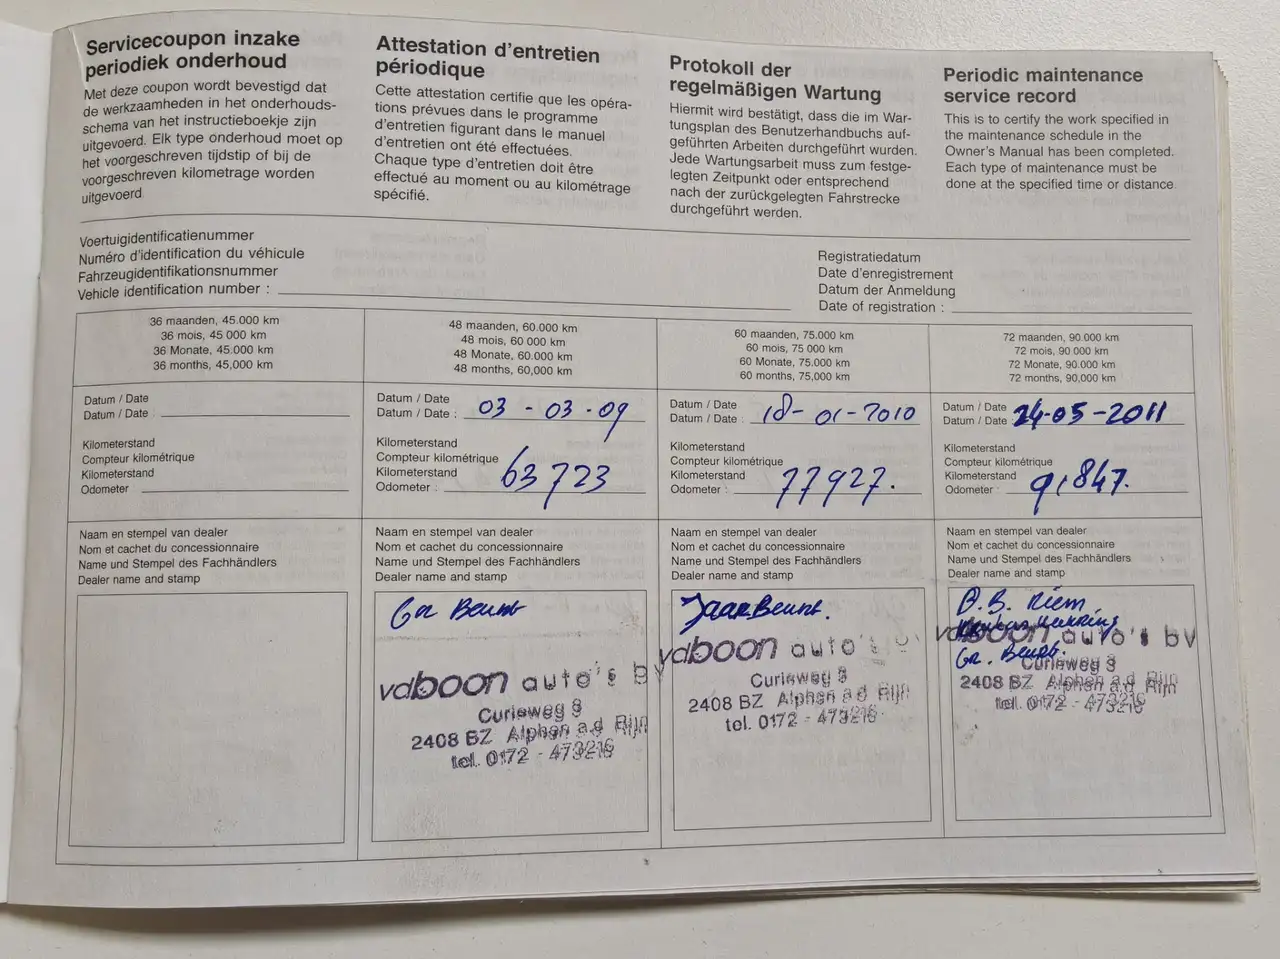 Servicecoupon inzake
periodiek onderhoud
Met deze coupon wordt bevestigd dat
de werkzaamheden in het onderhouds-
schema van het instructieboekje zijn
uitgevoerd. Elk type onderhoud moet op
het voorgeschreven tijdstip of bij de
voorgeschreven kilometrage worden
uitgevoerd.
Attestation d'entretien
périodique
Cette attestation certifie que les opéra-
tions prévues dans le programme
d'entretien figurant dans le manuel
d'entretien ont été effectuées.
Chaque type d'entretien doit être
effectué au moment ou au kilométrage
spécifié.
Protokoll der
regelmäßigen Wartung
Hiermit wird bestätigt, dass die im War-
tungsplan des Benutzerhandbuchs auf-
geführten Arbeiten durchgeführt wurden.
Jede Wartungsarbeit muss zum festge-
legten Zeitpunkt oder entsprechend
nach der zurückgelegten Fahrstrecke
durchgeführt werden.
Periodic maintenance
service record
This is to certify the work specified in
the maintenance schedule in the
Owner's Manual has been completed.
Each type of maintenance must be
done at the specified time or distance
Voertuigidentificatienummer
Numéro d'identification du véhicule
Fahrzeugidentifikationsnummer
Vehicle identification number :
Registratiedatum
Date d'enregistrement
Datum der Anmeldung
Date of registration :
36 maanden, 45.000 km
36 mois, 45 000 km
36 Monate, 45.000 km
36 months, 45,000 km
Datum / Date
Datum / Date :
Kilometerstand
Compteur kilométrique
Kilometerstand
Odometer :
Naam en stempel van dealer
Nom et cachet du concessionnaire
Name und Stempel des Fachhändlers
Dealer name and stamp
48 maanden, 60.000 km
48 mois, 60 000 km
48 Monate, 60.000 km
48 months, 60,000 km
Datum / Date
Datum / Date : 03 - 03 - 09
Kilometerstand
Compteur kilométrique
Kilometerstand
Odometer : 63723
Naam en stempel van dealer
Nom et cachet du concessionnaire
Name und Stempel des Fachhändlers
Dealer name and stamp
Gr Beurt
vdboon auto's bv
Curieweg 8
2408 BZ Alphen a.d. Rijn
tel. 0172 - 473216
60 maanden, 75.000 km
60 mois, 75 000 km
60 Monate, 75.000 km
60 months, 75,000 km
Datum / Date
Datum / Date : 18-01-2010
Kilometerstand
Compteur kilométrique
Kilometerstand
Odometer : 77927.
Naam en stempel van dealer
Nom et cachet du concessionnaire
Name und Stempel des Fachhändlers
Dealer name and stamp
Jaar Beurt.
vdboon auto's bv
Curieweg 8
2408 BZ Alphen a.d. Rijn
tel. 0172 - 473216
72 maanden, 90.000 km
72 mois, 90 000 km
72 Monate, 90.000 km
72 months, 90,000 km
Datum / Date
Datum / Date : 24-05-2011
Kilometerstand
Compteur kilométrique
Kilometerstand
Odometer : 91,847.
Naam en stempel van dealer
Nom et cachet du concessionnaire
Name und Stempel des Fachhändlers
Dealer name and stamp
D.B. Riem,
Gr. Beurt.
vdboon auto's bv
Curieweg 8
2408 BZ Alphen a.d. Rijn
tel. 0172 - 473216